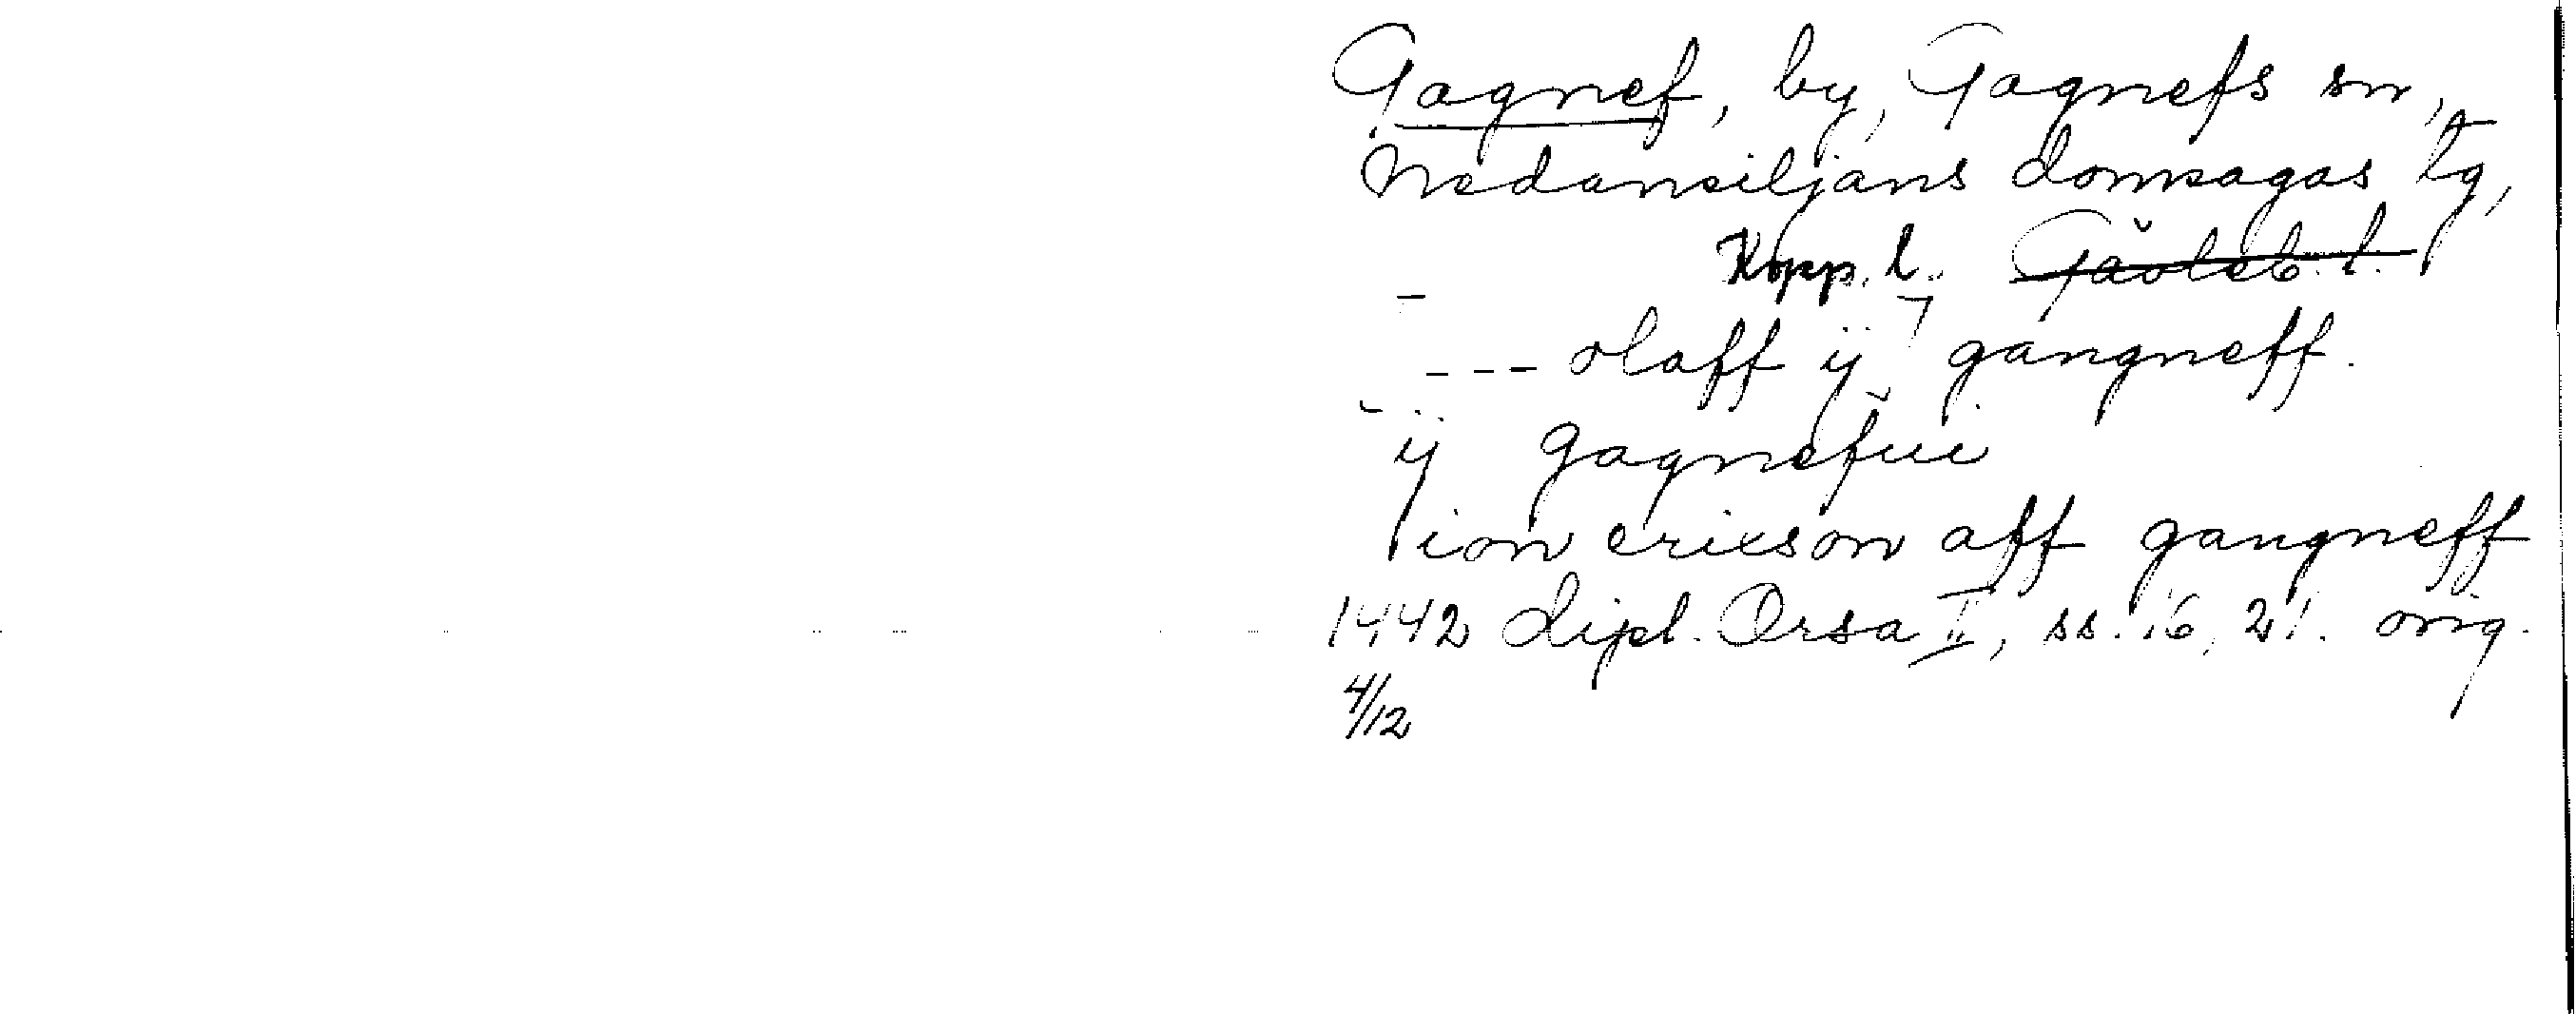 Gagnef, by, Gagnefs sn,
Nedansiljans domsagas tg,
Kopp. l. Gävleb. l.
--- olaff ij gangneff.
ij gagnefui
ion erixson aff gangneff
1442 Dipl. Orsa II, ss. 16, 21. orig.
4/12